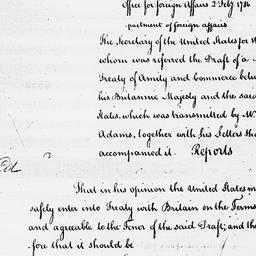 Office for foreign Affairs 2 Feby. 1786
partment of foreign affairs
The Secretary of the United States for
whom was referred the Draft of a
Treaty of Amity and commerce bet
his Britannic Majesty and the said
States, which was transmitted by Mr.
Adams, together with his Letters tha
accompanied it. Reports
That in his opinion the United States m
safely enter into Treaty with Britain on the Terms
and agreeable to the Tenor of the said Draft; and the
fore that it should be